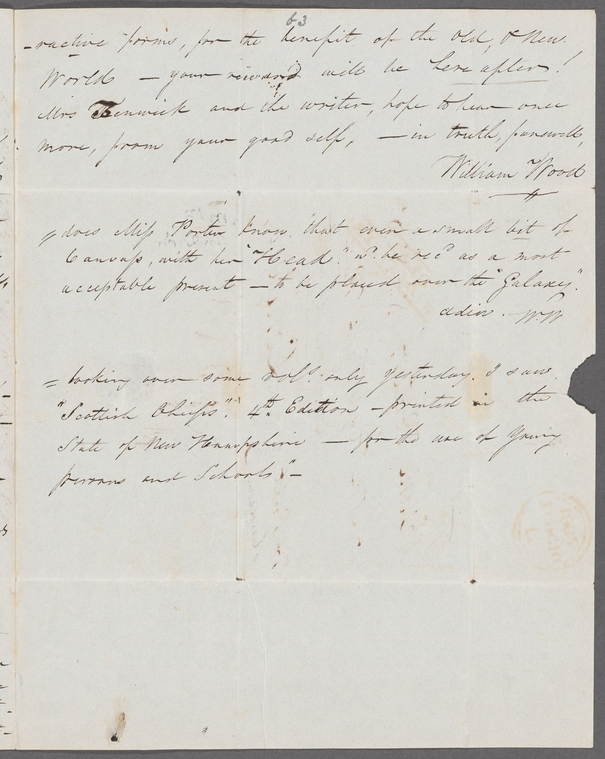 63
-ractive forms, for the benefit of the Old, & New
World — your reward will be hereafter!
Mrs Fenwick and the writer, hope to hear once
more, from your good self, — in truth, farewell,
William Wood
= does Miss Porter know that even a small bit of
Canvass, with her "Head" wd. be recd as a most
acceptable present — to be placed over the "Galaxy".
adieu. WW
= looking over some vols. only yesterday. I saw
"Scottish Chiefs". 4th. Edition — printed in the
State of New Hampshire — for the use of Young
persons and Schools" —